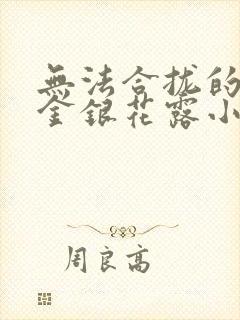 無法合拢的
金銀花露小
周良高